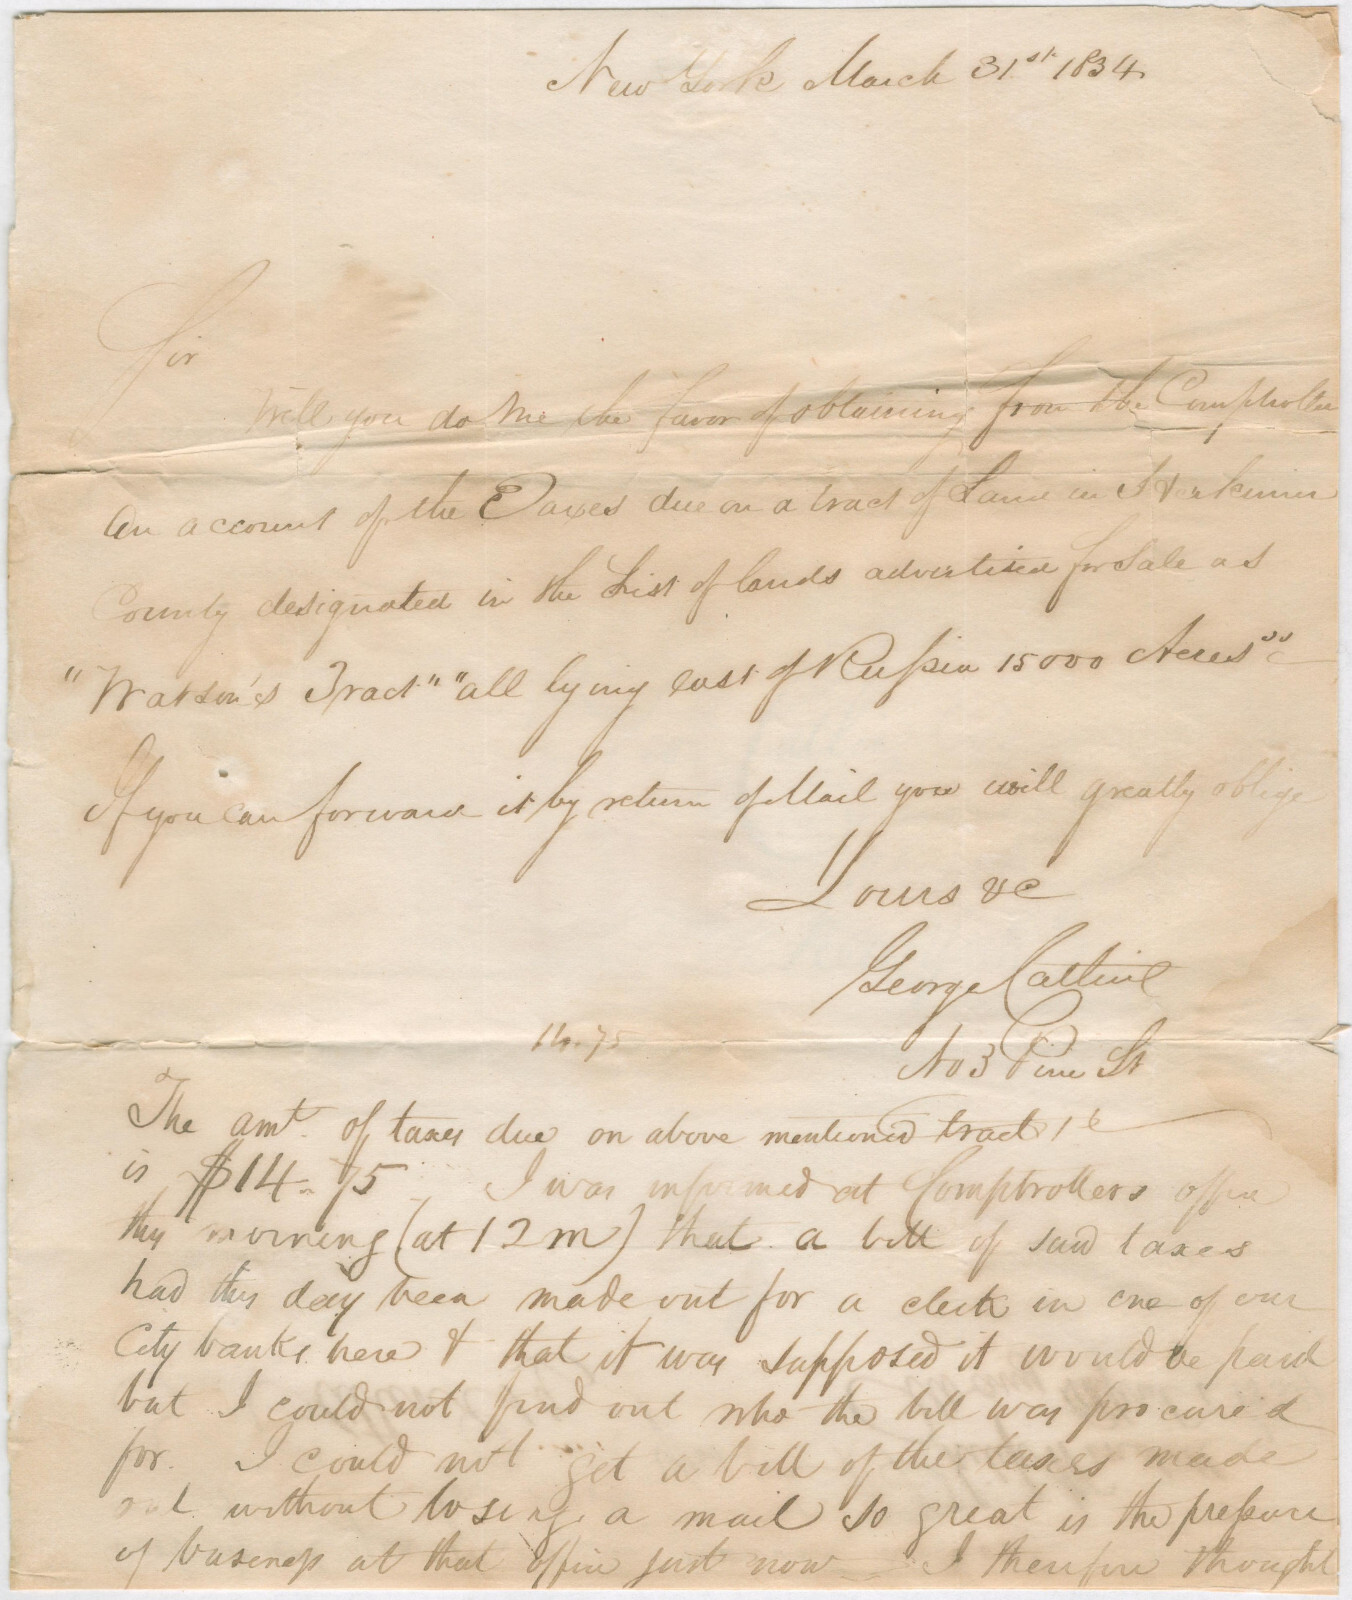 New York March 31st 1834.
Sir
Will you do me the favor of obtaining from the Comptroller
An account of the Taxes due on a tract of Land in Herkimer
County designated in the List of lands advertised for Sale as
"Watson's Tract" "all lying east of Russia 15000 Acres" &c
If you can forward it by return of Mail you will greatly oblige
Yours &c
George Catlin
No 3 Pine St
14.75
The amt. of taxes due on above mentioned tract
is $14.75 I was informed at Comptrollers office
this morning (at 12 m) that a bill of said taxes
had this day been made out for a clerk in one of our
City banks here & that it was supposed it would be paid
but I could not find out who the bill was procured
for. I could not get a bill of the taxes made
out without losing a mail so great is the pressure
of business at that office just now — I therefore thought